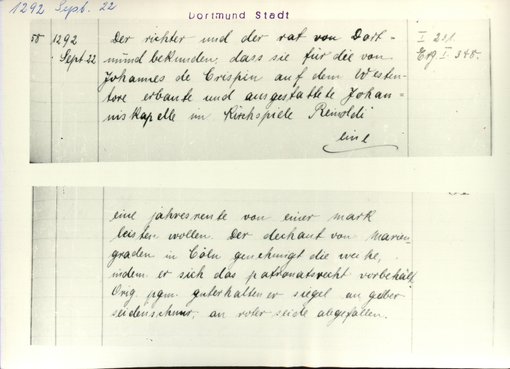 1292 Sept. 22
Dortmund Stadt
58 1292 Der richter und der rat von Dort= I 251.
Sept 22 mund bekunden, dass sie für die von Erg. I 348.
Johannes de Crispin auf dem Westen=
tore erbaute und ausgestattete Johan=
niskapelle im Kirchspiele Renoldi
eine
eine jahresrente von einer mark
leisten wollen. Der dechant von Marien-
graden in Cöln genehmigt die weihe,
indem er sich das patronatsrecht vorbehält.
Orig. pgm. guterhaltener siegel an gelber
seidenschnur, an roter seide abgefallen.